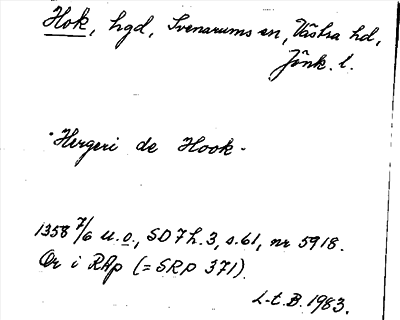 Hok, hgd, Svenarums sn, Västra hd,
Jönk. l.
"Hergeri de Hook"
1358 7/6 u.o., SD 7 h. 3, s. 61, nr 5918.
Or i RAp (= SRP 371).
L-t. B. 1983.